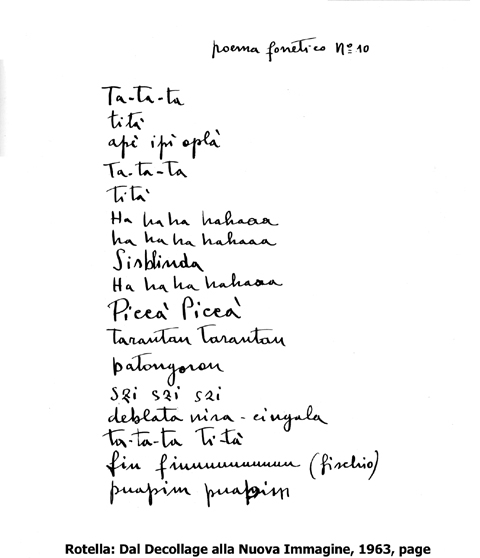 poema fonetico Nº 10
Ta-ta-ta
tità
apì ipì oplà
Ta-ta-Ta
tità
Ha ha ha hahaaa
ha ha ha hahaaa
Sisblinda
Ha ha ha hahaaa
Piccà Piccà
Tarantan Tarantan
patongoron
szi szi szi
deblata nira - cingala
ta-ta-ta Ti-tà
fin finuuuuuuuuuu (fischio)
puapim puapim
Rotella: Dal Decollage alla Nuova Immagine, 1963, page